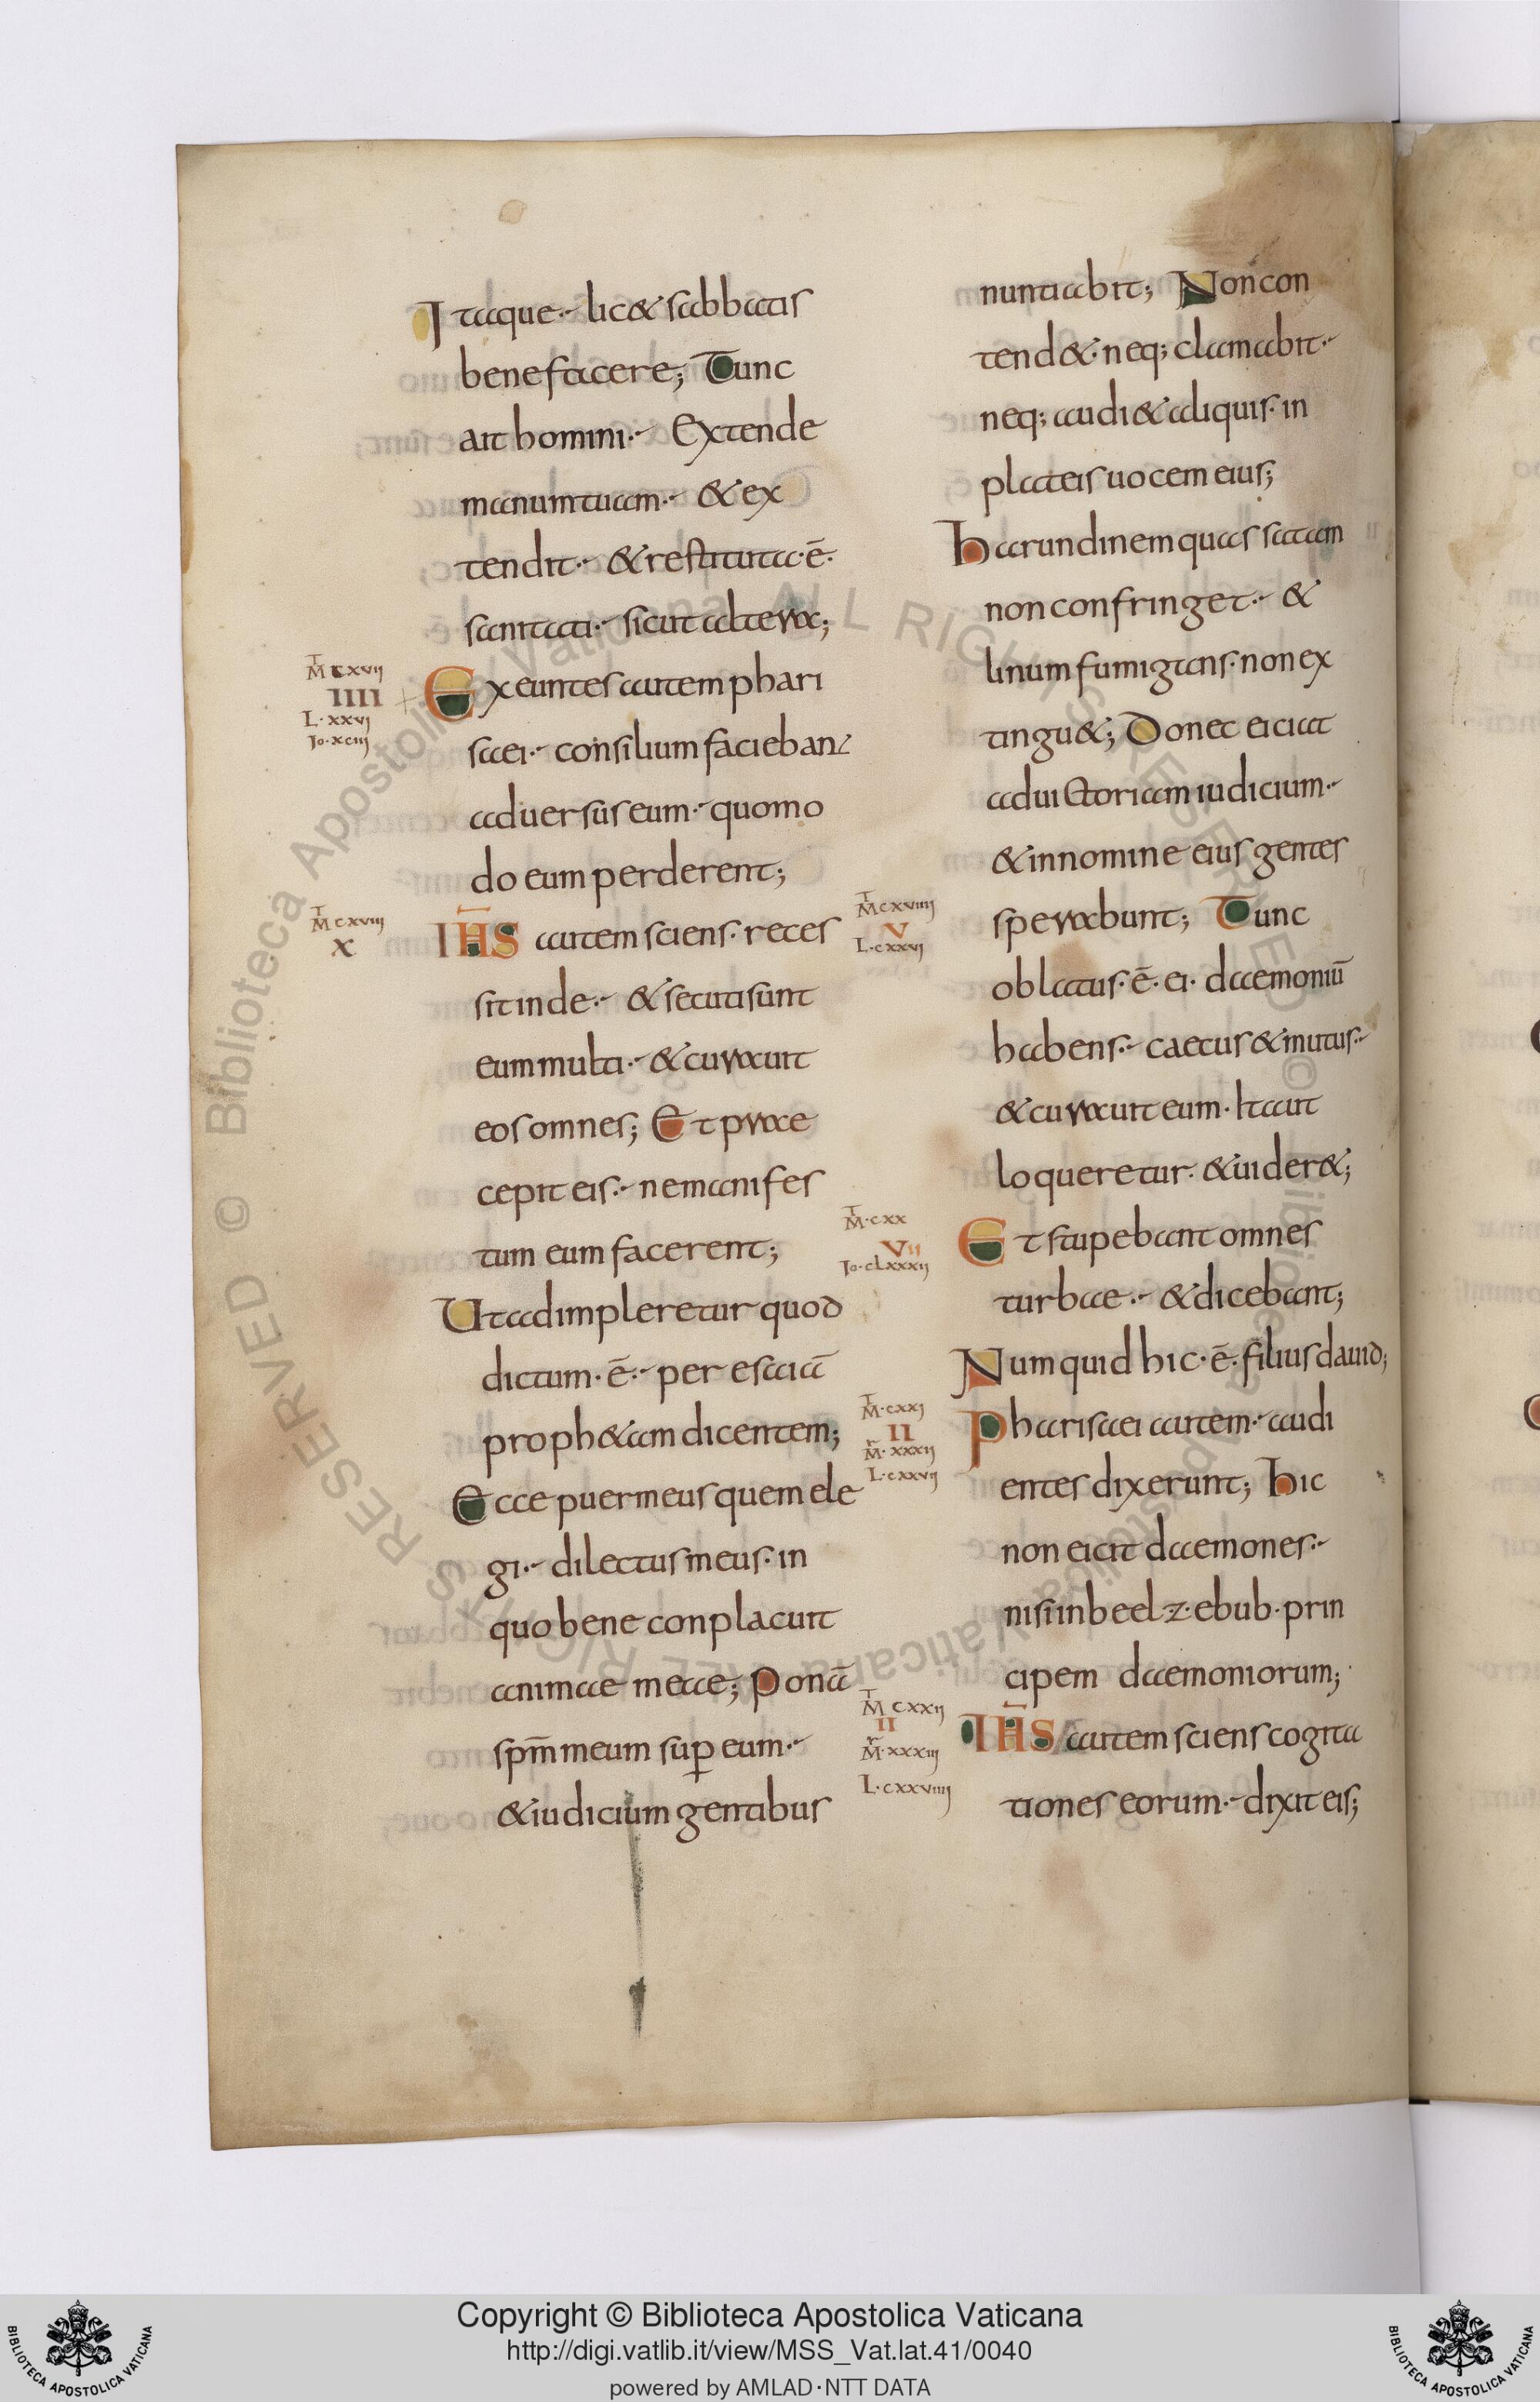 Itaque· lic& sabbatis
benefacere; Tunc
ait homini· Extende
manum tuam· & ex
tendit· & restituta·ē·
sanitati· sicut altera;
MT cxvii
IIII
L·xxvi
Jo·xciii
Exeuntes autem phari
saei· consilium faciebant
aduersus eum· quomo
do eum perderent;
MT cxviii
X
IHS autem sciens· reces
sit inde· & secuti sunt
eum multi· & curauit
eos omnes; Et prae
cepit eis· ne manifes
tum eum facerent;
Ut adimpleretur quod
dictum·ē· per esaiā
proph&am dicentem;
Ecce puer meus quem ele
gi· dilectus meus· in
quo bene conplacuit
animae meae; Ponā
spm̄ meum sup eum·
& iudicium gentibus
nuntiabit; Non con
tend&· neq; clamabit·
neq; audi& aliquis· in
plateis uocem eius;
harundinem quassatam
non confringet· &
linum fumigans· non ex
tingu&; Donec eiciat
ad uictoriam iudicium·
& in nomine eius gentes
MT cxviiii
V
L·cxxvi
sperabunt; Tunc
oblatus·ē·ei· daemoniū
habens· caecus & mutus·
& curauit eum· Ita ut
loqueretur· & uider&;
MT·cxx
VII
Jo·clxxxii
Et stupebant omnes
turbae· & dicebant;
Numquid hic·ē·filius dauid;
MT·cxxi
II
Mr·xxxii
L·cxxvii
Pharisaei autem· audi
entes dixerunt; hic
non eicit daemones·
nisi in beel·z·ebub· prin
cipem daemoniorum;
MT cxxii
II
Mr·xxxiii
L·cxxviiii
IHS autem sciens cogita
tiones eorum· dixit eis;
Copyright © Biblioteca Apostolica Vaticana
http://digi.vatlib.it/view/MSS_Vat.lat.41/0040
powered by AMLAD·NTT DATA
BIBLIOTECA APOSTOLICA VATICANA
BIBLIOTECA APOSTOLICA VATICANA